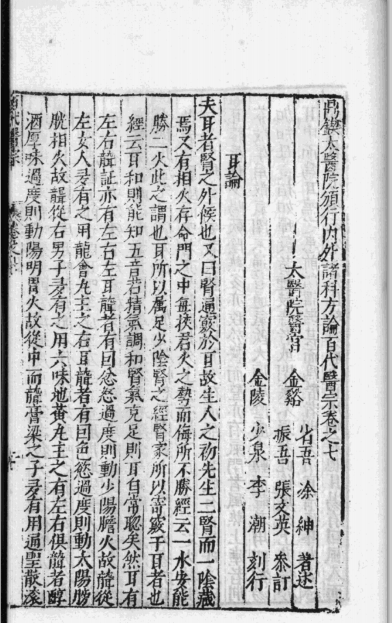 鼎鐭太醫院頒行內外諸科方論百代醫宗卷之七
太醫院醫官 金谿 省吾 涂紳 著述
振吾 張文英 叅訂
金陵 少泉 李潮 刻行
耳論
夫耳者腎之外候也又曰腎通竅於耳故生人之初先生二腎而一陰藏
焉又有相火存命門之中每挾君火之勢而侮所不勝經云一水安能
勝二火此之謂也耳所以屬足少陰腎之經腎家所以寄竅于耳者也
經云耳和則能知五音若精氣調和腎氣充足則耳自常聰矣然耳有
左右聾証亦有左右左耳聾者有因忿怒過度則動少陽膽火故聾從
左女人多有之用龍薈丸主之右耳聾者有因色慾過度則動太陽膀
胱相火故聾從右男子多有之用六味地黃丸主之有左右俱聾者醇
酒厚味過度則動陽明胃火故從中而聾膏粱之子多有用通聖散滚